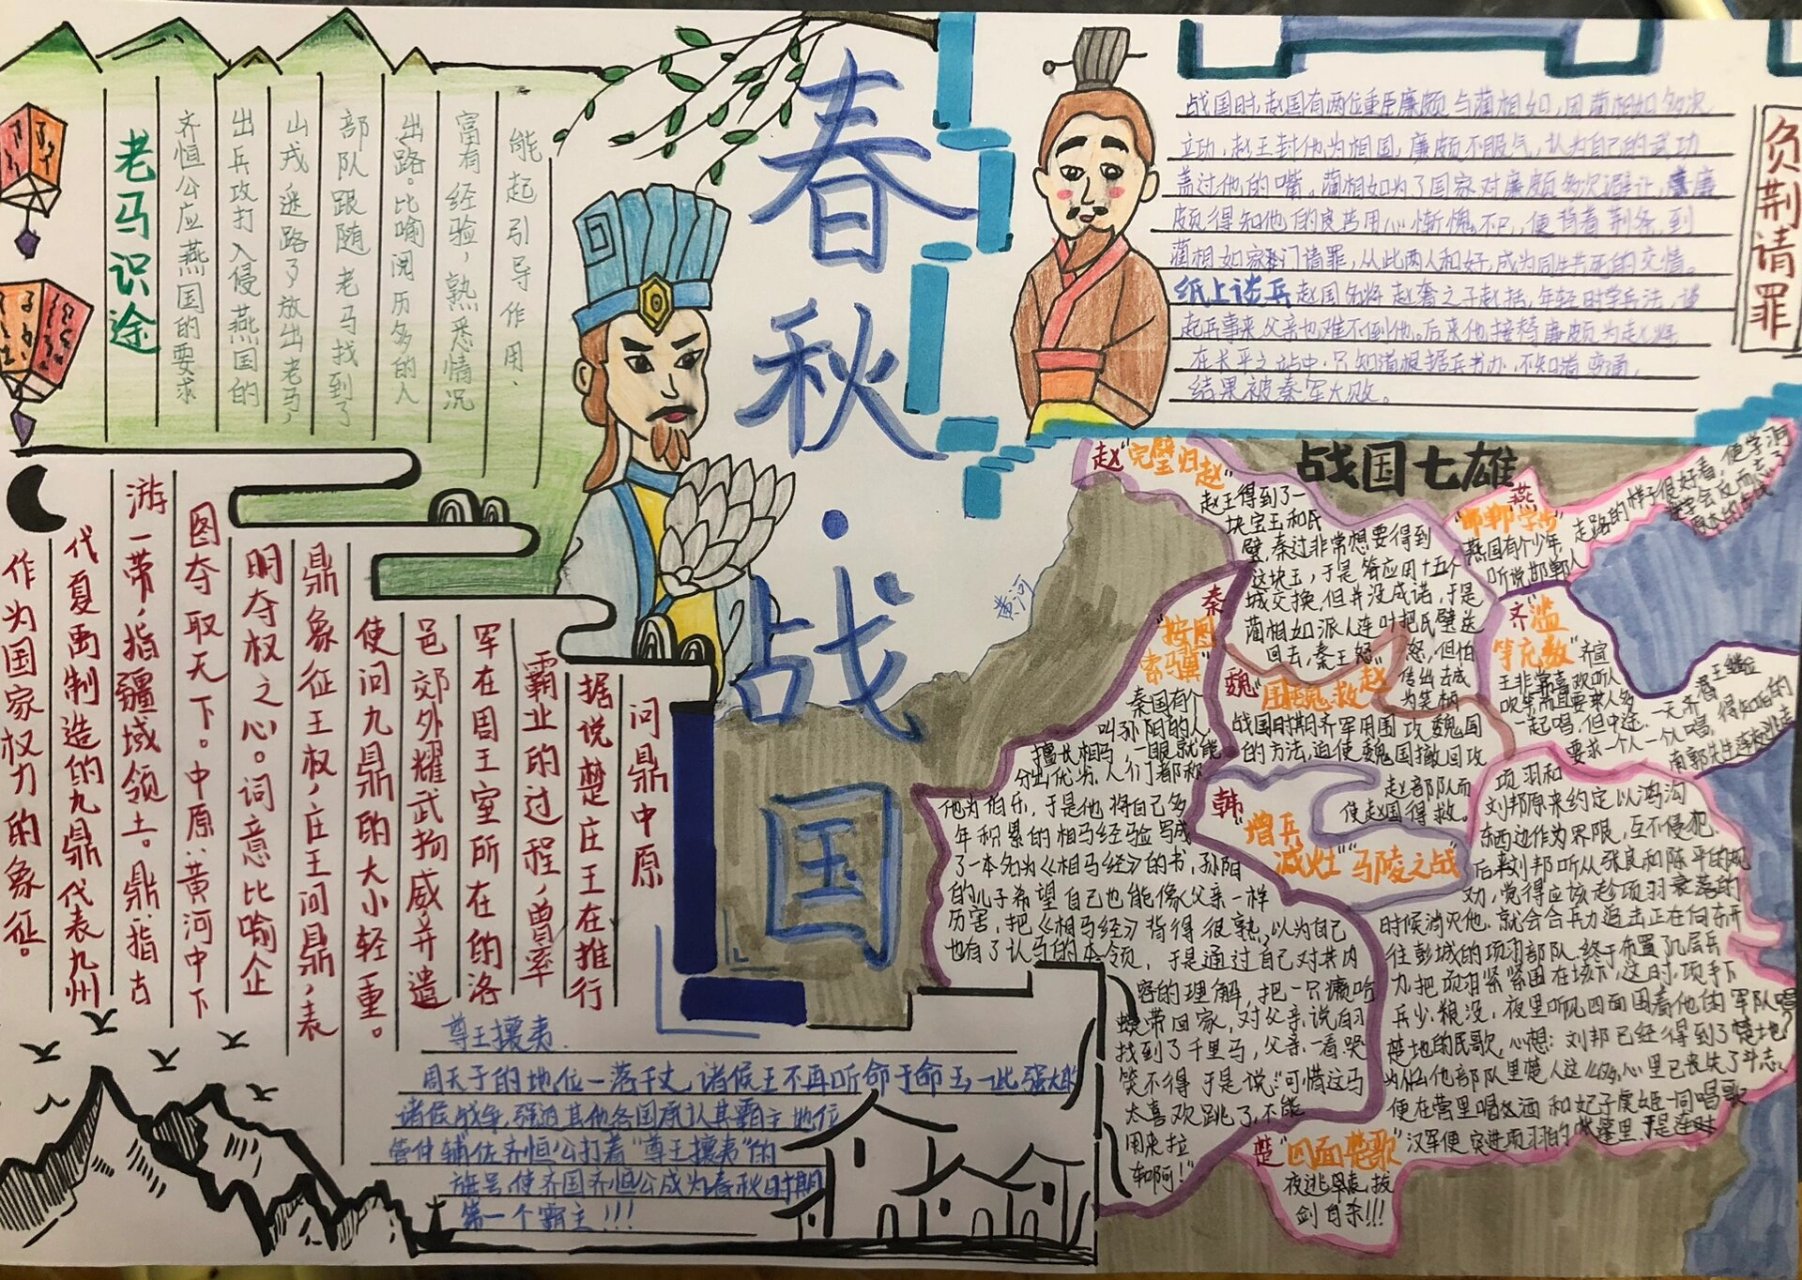 春秋·战国
老马识途
齐恒公应燕国的要求
出兵攻打入侵燕国的
山戎迷路了放出老马,
部队跟随老马找到了
出路。比喻阅历多的人
富有经验,熟悉情况
能起引导作用.
问鼎中原
据说楚庄王在推行
霸业的过程,曾率
军在周王室所在的洛
邑郊外耀武扬威并遣
使问九鼎的大小轻重。
鼎象征王权,庄王问鼎,表
明夺权之心。词意比喻企
图夺取天下。中原:黄河中下
游一带,指疆域领土。鼎:指古
代夏禹制造的九鼎代表九州
作为国家权力的象征。
尊王攘夷.
周天子的地位一落千丈,诸侯王不再听命于命王,一此强大的
诸侯战争,强迫其他各国承认其霸主地位
管仲辅佐齐恒公打着"尊王攘夷"的
旗号,使齐国齐恒公成为春秋时期
第一个霸主!!!
负荆请罪
战国时,赵国有两位重臣廉颇与蔺相如,因蔺相如多次
立功,赵王封他为相国,廉颇不服气,认为自己的武功
盖过他的嘴。蔺相如为了国家对廉颇多次避让,廉
颇得知他的良苦用心惭愧不已,便背着荆条,到
蔺相如家门请罪,从此两人和好,成为同生共死的交情。
纸上谈兵 赵国名将赵奢之子赵括,年轻时学兵法,谈
起兵事来父亲也难不倒他。后来他接替廉颇为赵将
在长平之站中.只知道根据兵书办,不知道变通,
结果被秦军大败。
战国七雄
黄河
赵"完璧归赵"
赵王得到了一
块宝玉和氏
璧,秦过非常想要得到
这块玉,于是答应用十五个
城交换,但并没成诺,于是
蔺相如派人连叶把氏璧送
回去,秦王怒
燕
"邯郸学步"
燕国有个少年
听说邯郸人
走路的样子很好看,便学
齐"滥
竽充数"齐宣
王非常喜欢听
一起唱,但中途
一天齐
要求一个人一个人唱,得知后的
南郭先生连夜逃走
秦
"按图
索骥"
秦国有个
叫孙阳的人,
擅长相马,一眼就能
分出优劣,人们都称
他为伯乐,于是他将自己多
年积累的相马经验写成
了一本名为《相马经》的书,孙阳
的儿子希望自己也能像父亲一样
厉害,把《相马经》背得很熟,以为自己
也有了认马的本领,于是通过自己对其内
容的理解,把一只癞哈
蟆带回家,对父亲说自习
找到了千里马,父亲一看哭
笑不得于是说:"可惜这马
太喜欢跳了,不能
用来拉
车啊!"
魏"围魏救赵"
战国时期齐军用围攻魏国
的方法,迫使魏国撤回攻
赵部队而
使赵国得救。
韩"增兵
减灶""马陵之战"
项羽和
刘邦原来约定以鸿沟
东西边作为界限,互不侵犯.
后来刘邦听从张良和陈平的规
劝,觉得应该趁项羽衰落的
时候消灭他,就会合兵力追击正在向东开
往彭城的项羽部队.终于布置了几层兵
力,把项羽紧紧围在垓下,这时,项手下
兵少,粮没,夜里听见四面围着他的军队唱
楚地的民歌,心想:刘邦已经得到了楚地
为什么他部队里楚人这么多,心里已丧失了斗志,
便在营里喝酒和妃子虞姬一同唱歌
汉军便突进项羽的帐篷里,于是连
楚"四面楚歌"
夜逃早走,拔
剑自杀!!!